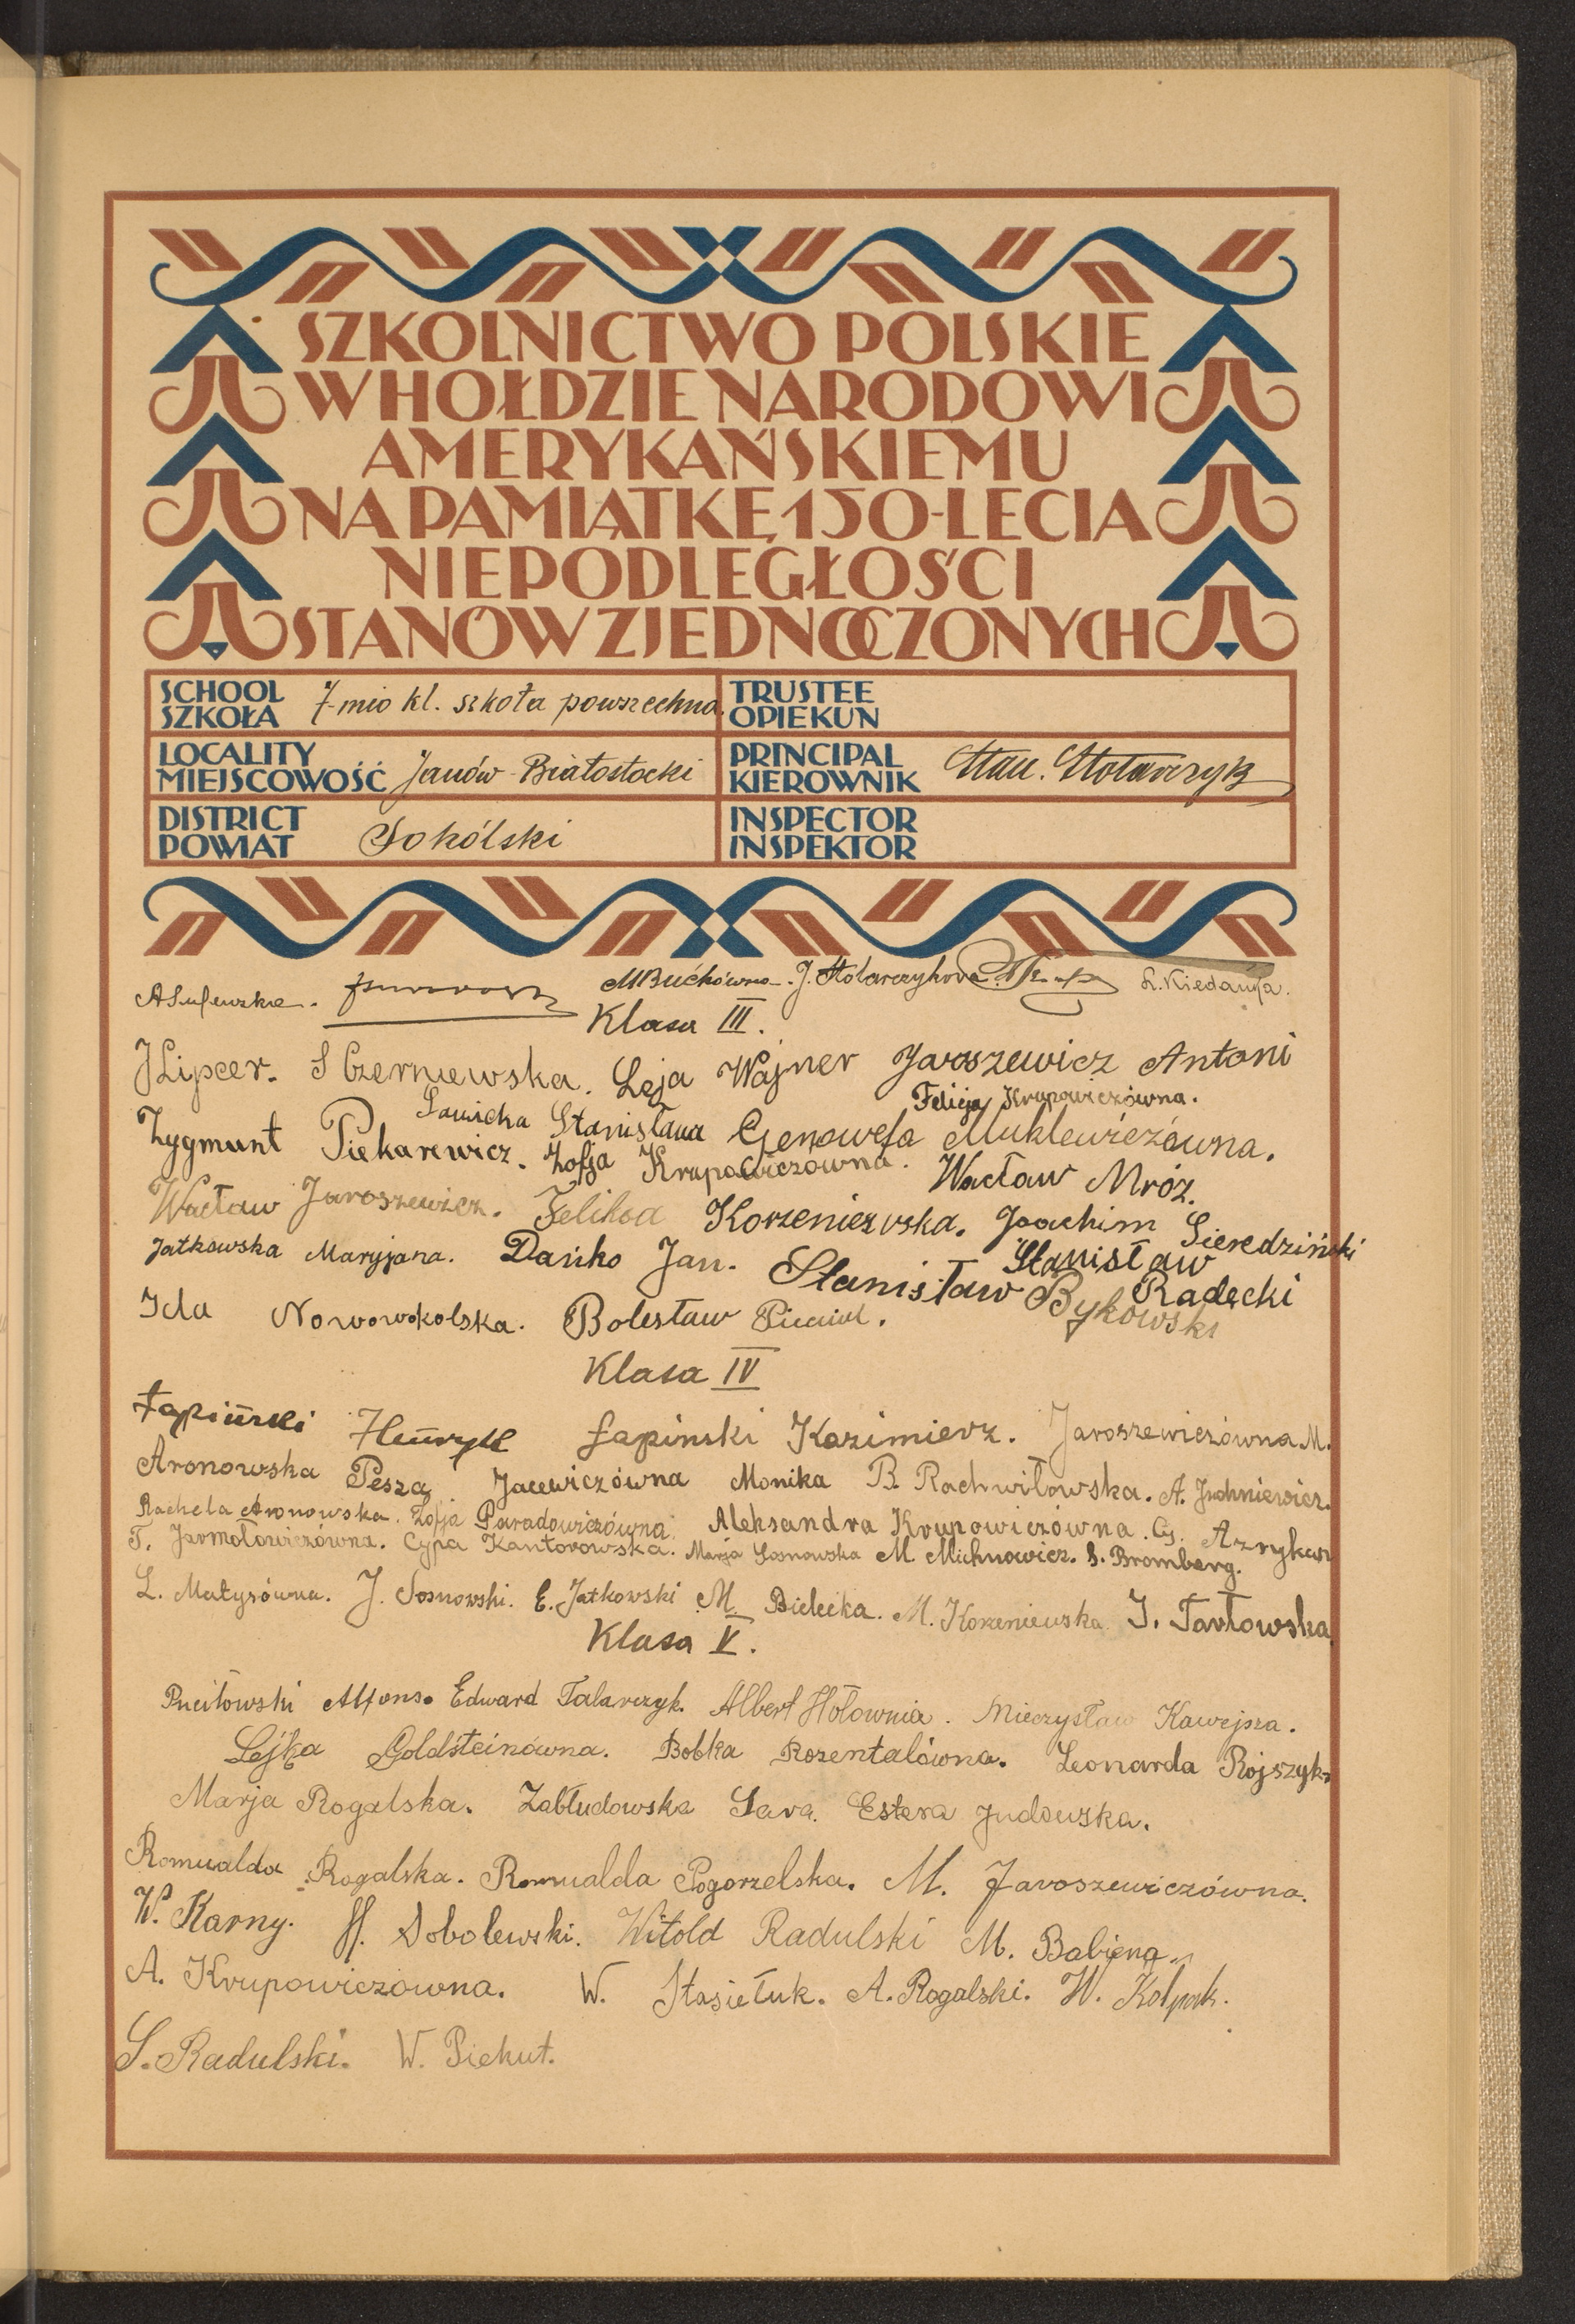 SZKOLNICTWO POLSKIE
W HOŁDZIE NARODOWI
AMERYKAŃSKIEMU
NA PAMIĄTKĘ 150-LECIA
NIEPODLEGŁOŚCI
STANÓW ZJEDNOCZONYCH
SCHOOL
SZKOŁA 7-mio kl. szkoła powszechna.
TRUSTEE
OPIEKUN
LOCALITY
MIEJSCOWOŚĆ Janów-Białostocki
PRINCIPAL
KIEROWNIK Stan. Stolarczyk
DISTRICT
POWIAT Sokólski
INSPECTOR
INSPEKTOR
MBućkówna. J. Stolarczykowa
Klasa III.
JLipcer. S Czerniewska. Leja Wajner Jaroszewicz Antoni
Felicja Krupowiczówna.
Sawicka Stanisława Genowefa Muklewiczówna.
Zygmunt Piekarewicz. Zofja Krupowiczówna. Wacław Mróz.
Wacław Jaroszewicz. Feliksa Korzeniewska. Joachim Sieredziński
Jatkowska Maryjana. Dańko Jan. Stanisław Bykowski
Stanisław Radęcki
Ida Nowowolska. Bolesław
Klasa IV
Łapiński Henryk Łapinski Kazimierz. Jaroszewiczówna M.
Aronowska Pesza Jacewiczówna Monika B. Rachwiłowska. A. Juchniewicz.
Rachela Aronowska. Zofja Paradowiczówna. Aleksandra Krupowiczówna. Cz.
T. Jarmołowiczówna. Cypa Kantorowska. Marja Sosnowska M. Michnowicz. S. Bromberg.
L. Matysówna. J. Sosnowski. E. Jatkowski M. Bielecka. M. Korzeniewska. J. Tarłowska
Klasa V.
Puciłowski Alfons. Edward Talarczyk. Albert Hołownia. Mieczysław Kawejsza.
Lejka Goldsteinówna. Bobka Rozentalówna. Leonarda
Marja Rogalska. Zabłudowska Sara. Estera Judowska.
Romualda Rogalska. Romualda Pogorzelska. M. Jaroszewiczówna.
W. Karny. H. Sobolewski. Witold Radulski M.
A. Krupowiczówna. W. Stasiełuk. A. Rogalski. W. Kołpak.
S. Radulski. W. Piekut.